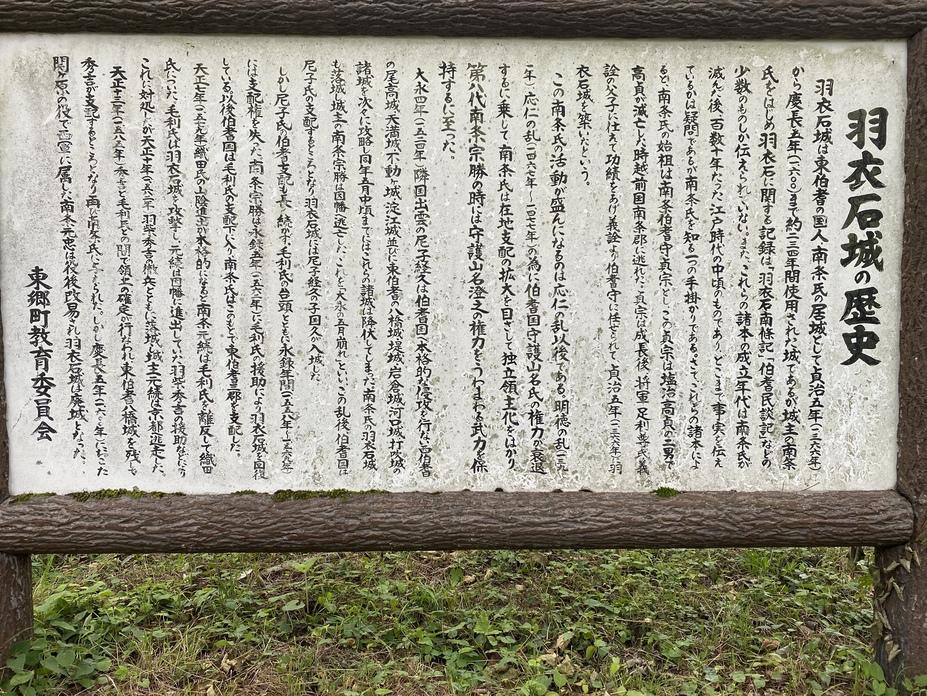 羽衣石城の歴史
羽衣石城は東伯耆の国人・南条氏の居城として貞治五年(一三六六年)
から慶長五年(一六〇〇)まで約二三四年間使用された城であるが城主の南条
氏をはじめ羽衣石に関する記録は「羽衣石南條記」「伯耆民談記」などの
少数のものしか伝えられていない。また、これらの諸本の成立年代は南条氏が
滅んだ後、百数十年たった江戸時代の中頃のものであり、どこまで事実を伝え
ているかは疑問であるが南条氏を知る一つの手掛かりである。さて、これらの諸本によ
ると、南条氏の始祖は南条伯耆守貞宗とし、この貞宗は塩冶高貞の二男で
高貞が滅亡した時越前国南条郡に逃れた。貞宗は成長後、将軍足利尊氏義
詮の父子に仕えて功績をあげ義詮より伯耆守に任ぜられて貞治五年(一三六六年)羽
衣石城を築いたという。
この南条氏の活動が盛んになるのは応仁の乱以後である。明徳の乱(一三九一
年)応仁の乱(一四六七年〜一四七七年)の為に伯耆国守護山名氏の権力が衰退
するに乗して、南条氏は在地支配の拡大を目ざして独立領主化をはかり
第八代南条宗勝の時には守護山名澄之の権力をうわまわる武力を保
持するに至った。
大永四年(一五二四年)隣国出雲の尼子経久は伯耆国へ本格的な侵攻を行ない西伯耆
の尾高城、天満城、不動ヶ城、淀江城並びに東伯耆の八橋城、堤城、岩倉城、河口城、打吹城の
諸城を次々に攻略し同年五月中頃までにはこれらの諸城は降伏してしまった。南条氏の羽衣石城
も落城、城主の南条宗勝は因幡へ逃亡した。これを「大永の五月崩れ」といい、この乱後伯耆国は
尼子氏の支配するところとなり羽衣石城には尼子経久の子国久が入城した。
しかし尼子氏の伯耆支配も長く続かず、毛利氏の台頭とともに永録年間(一五五八年〜一五六九年)
には支配権を失った。南条宗勝は永録五年(一五六二年)に毛利氏の援助により羽衣石城を回復
している。以後伯耆の国は毛利氏の支配下に入り南条氏はこのもとで東伯耆三郡を支配した。
天正七年(一五七九年)織田氏の山陰進出が本格的になると南条元続は毛利氏を離反して織田
氏についた。毛利氏は羽衣石城を攻撃し、元続は因幡に進出していた羽柴秀吉の援助などにより
これに対処したが天正十年(一五八二年)羽柴秀吉の撤兵とともに落城、城主元続は京都へ逃走した。
天正十三年(一五八五年)秀吉と毛利氏との間で領土の確定が行なわれ東伯耆は八橋城を残して
秀吉が支配するところとなり再び南条氏に与えられた。しかし慶長五年(一六〇〇年)におこった
関ヶ原の役で西軍に属した南条元忠は役後改易され羽衣石城は廃城となった。
東郷町教育委員会